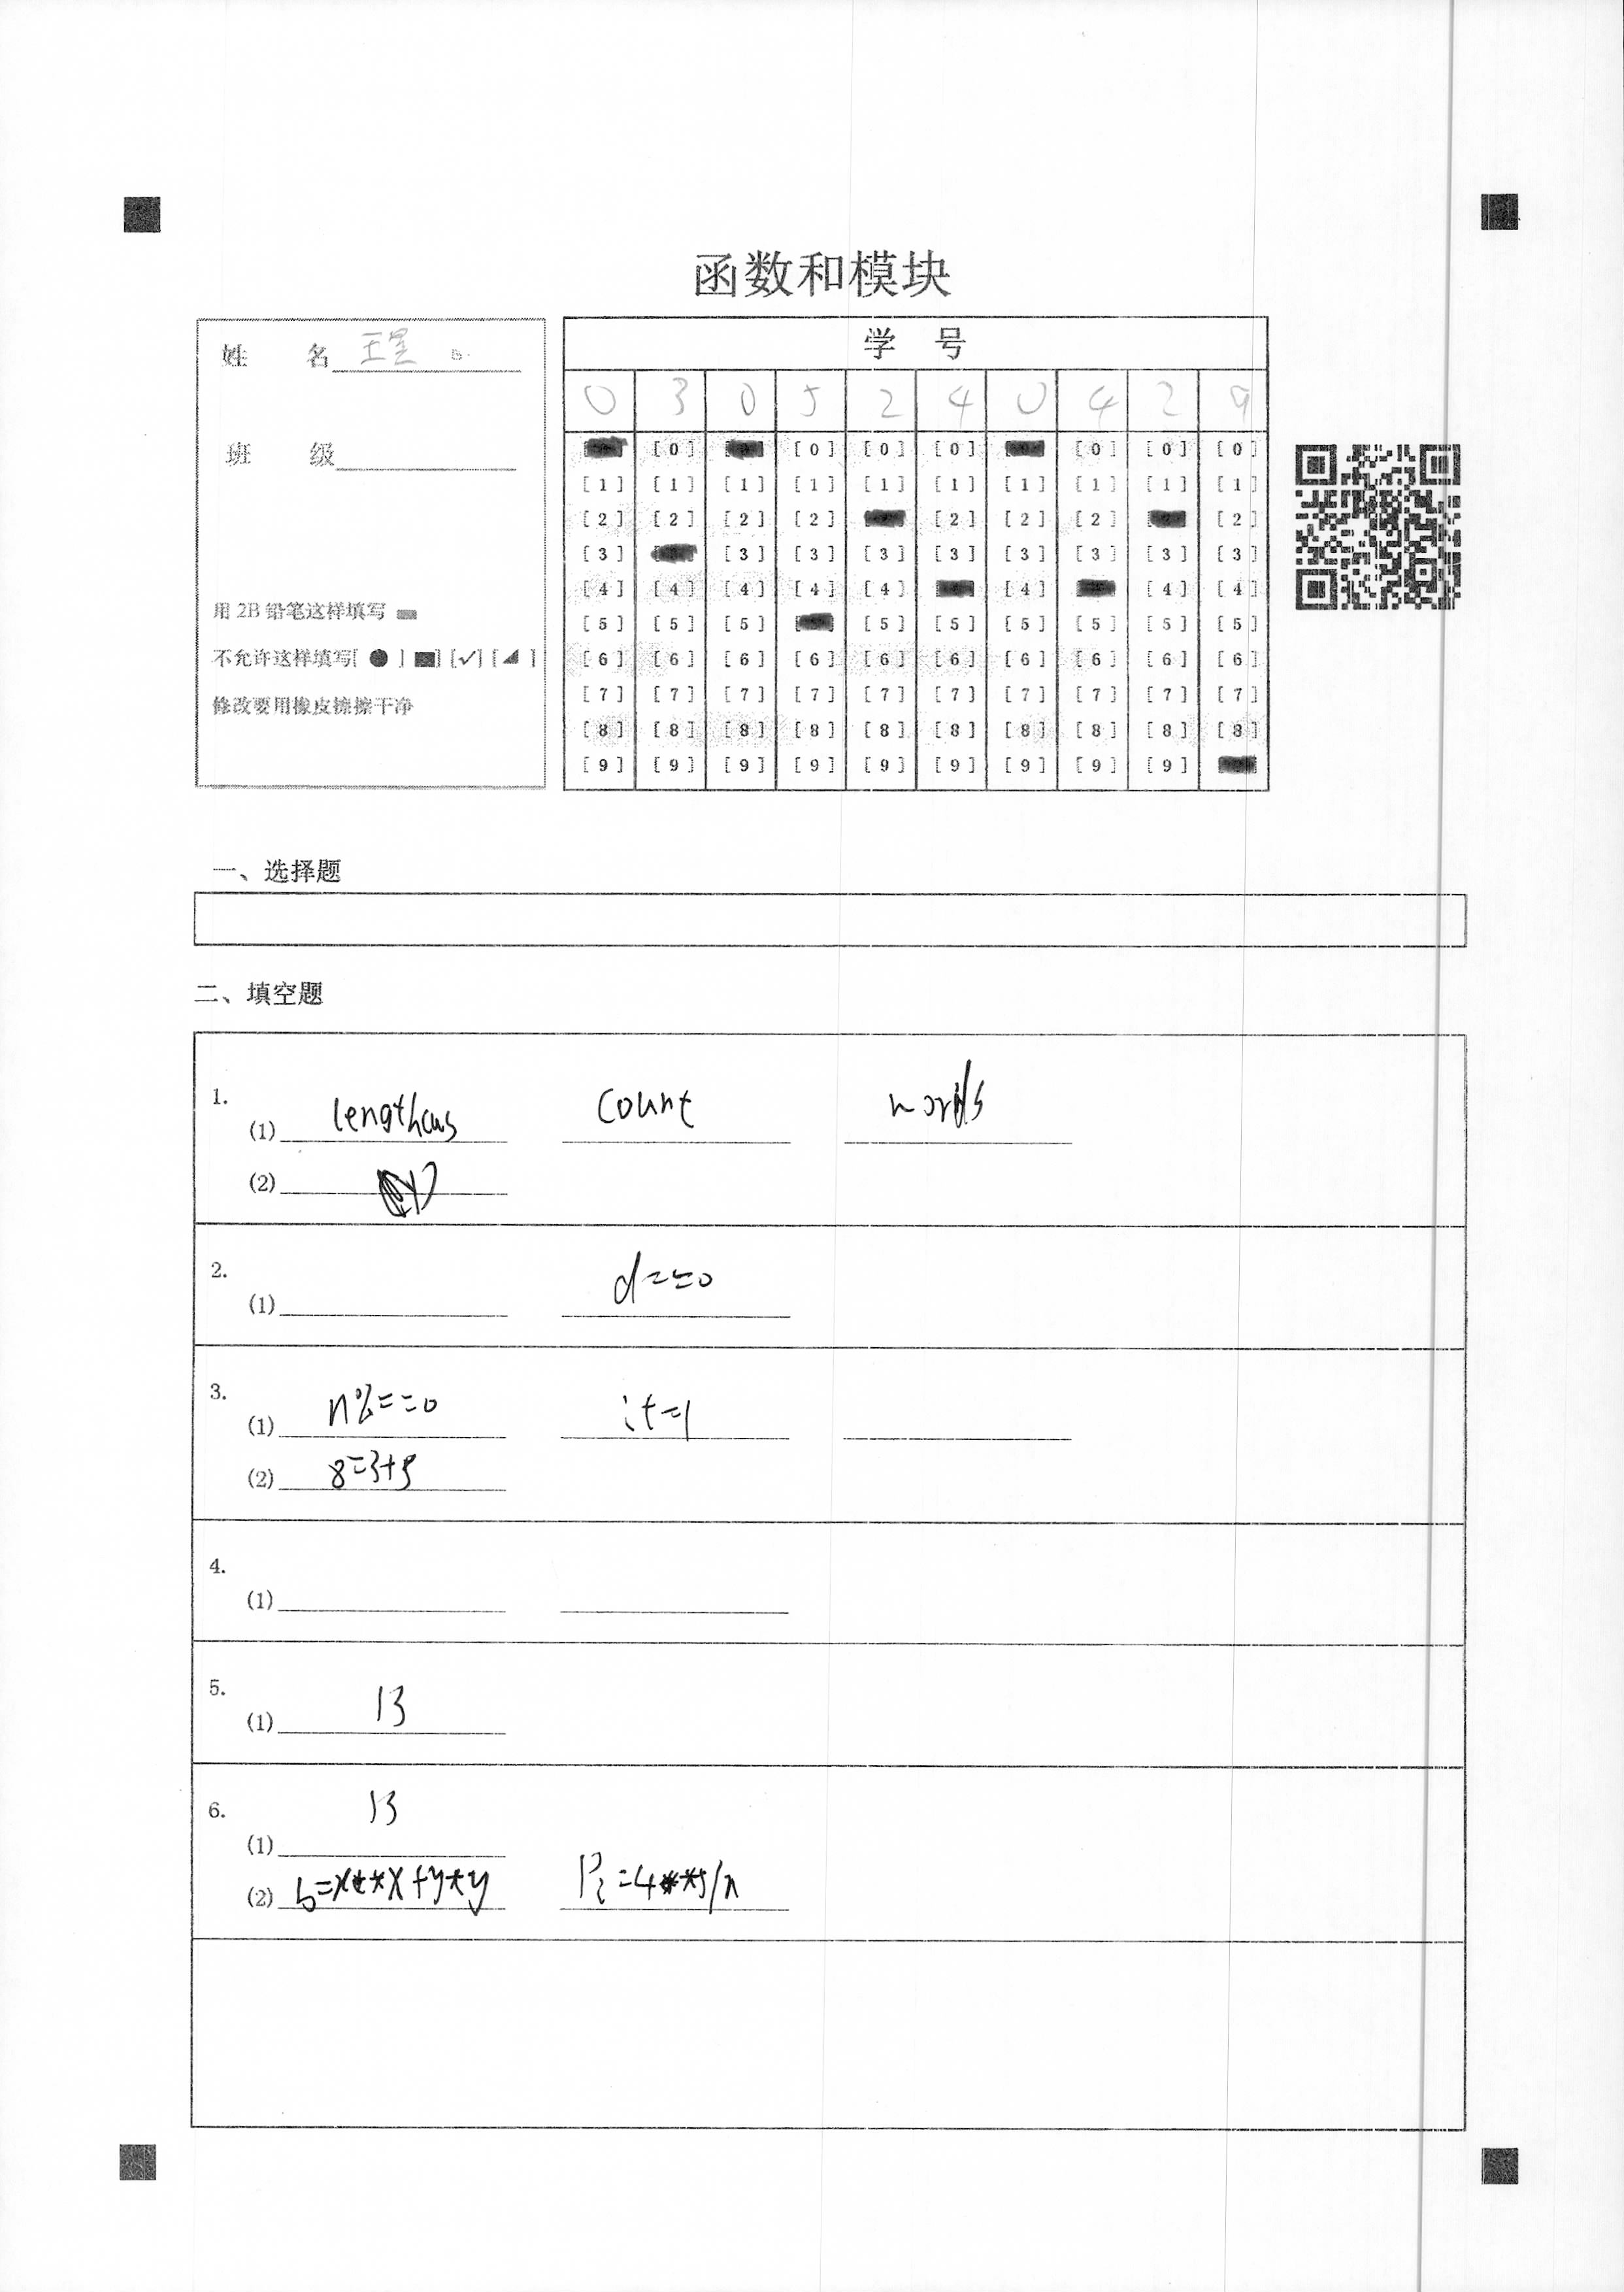 函数和模块
姓 名 王星
班 级
用 2B 铅笔这样填写
不允许这样填写[ ● ] [■] [✓] [◢ ]
修改要用橡皮擦擦干净
学 号
0 3 0 5 2 4 0 4 2 9
[0] [0] [0] [0] [0] [0] [0]
[1] [1] [1] [1] [1] [1] [1] [1] [1] [1]
[2] [2] [2] [2] [2] [2] [2] [2]
[3] [3] [3] [3] [3] [3] [3] [3] [3]
[4] [4] [4] [4] [4] [4] [4] [4]
[5] [5] [5] [5] [5] [5] [5] [5] [5]
[6] [6] [6] [6] [6] [6] [6] [6] [6] [6]
[7] [7] [7] [7] [7] [7] [7] [7] [7] [7]
[8] [8] [8] [8] [8] [8] [8] [8] [8] [8]
[9] [9] [9] [9] [9] [9] [9] [9] [9]
一、选择题
二、填空题
1.
(1) count words
(2)
2.
(1) d==0
3.
(1) n%==0 i+=1
(2) 8=3+5
4.
(1)
5.
(1) 13
6.
(1) 13
(2) b=x**x+y*y Pi=4**s/n